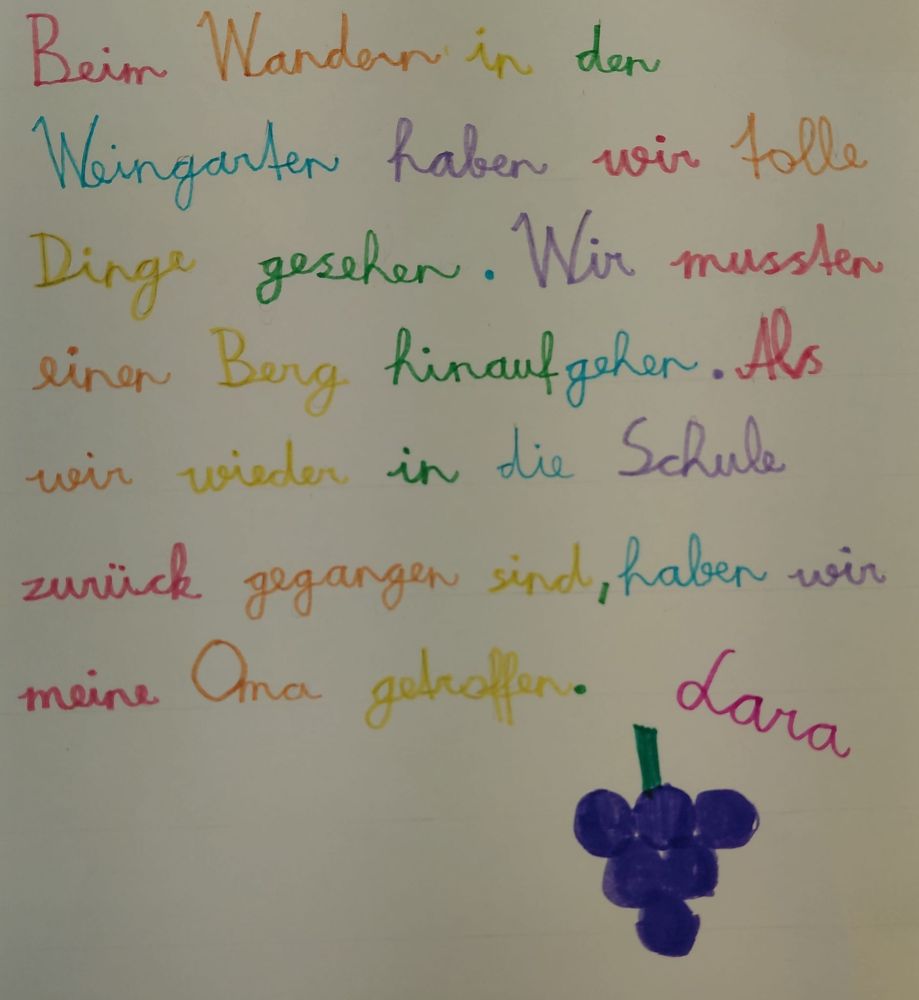 Beim Wandern in den
Weingarten haben wir tolle
Dinge gesehen. Wir mussten
einen Berg hinaufgehen. Als
wir wieder in die Schule
zurück gegangen sind, haben wir
meine Oma getroffen. Lara